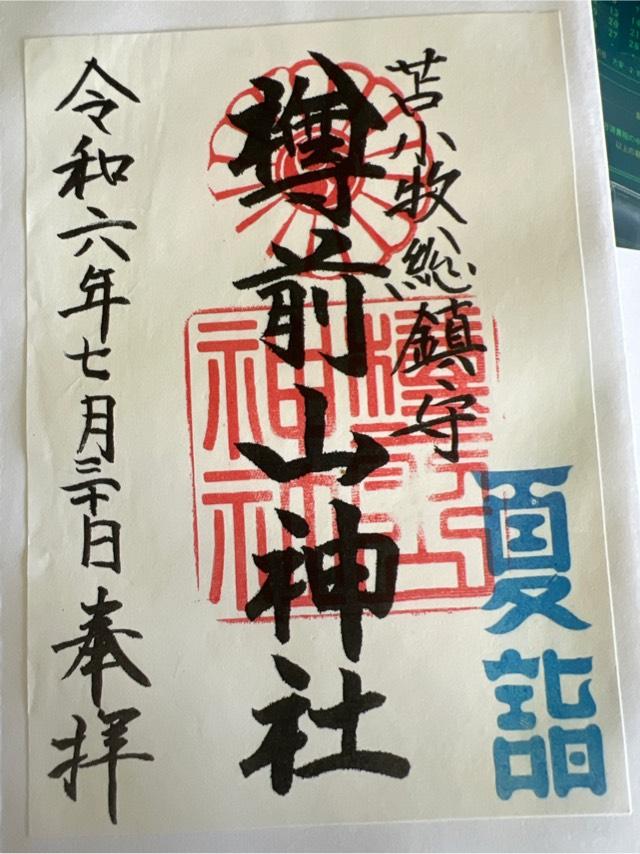 苫小牧総鎮守
樽前山神社
令和六年七月三十日 奉拝
夏詣
樽前山
神社